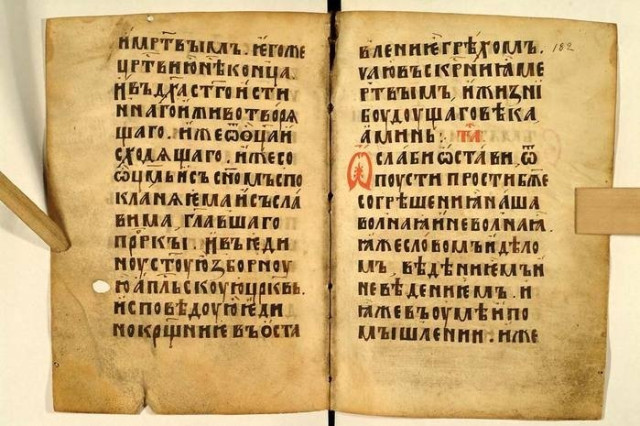 имртвымъ. ѥгоже
црⷭтвию нѣ конца.
и въ дх҃а ст҃го исти
ннаго и животворѧ
щаго. иже ѿ ѡц҃аи
сходѧщаго. иже со
ѡц҃мь и съ сн҃омъ спо
кланѧѥма и съсла
вима гл҃авшаго
прⷪркы. и въ ѥди
ноу ст҃оую зборноу
ю ап҃льскоую цр҃квь.
исповѣдоую ѥди
но крⷭщниѥ въ оста
влениѥ грѣхомъ. 182
чаю въскрⷭниꙗ ме
ртвымъ, и жизнї
боудоущаго вѣка
аминь: та
Ослаби ѡстави, ѿ
поусти прости бж҃е
согрѣшениꙗ наша
волнаꙗ и неволнаꙗ.
ꙗже словомъ и дѣло
мъ, вѣдениемъ и
невѣдениемъ. и
ꙗже въ оумѣ и по
мышлении. иже